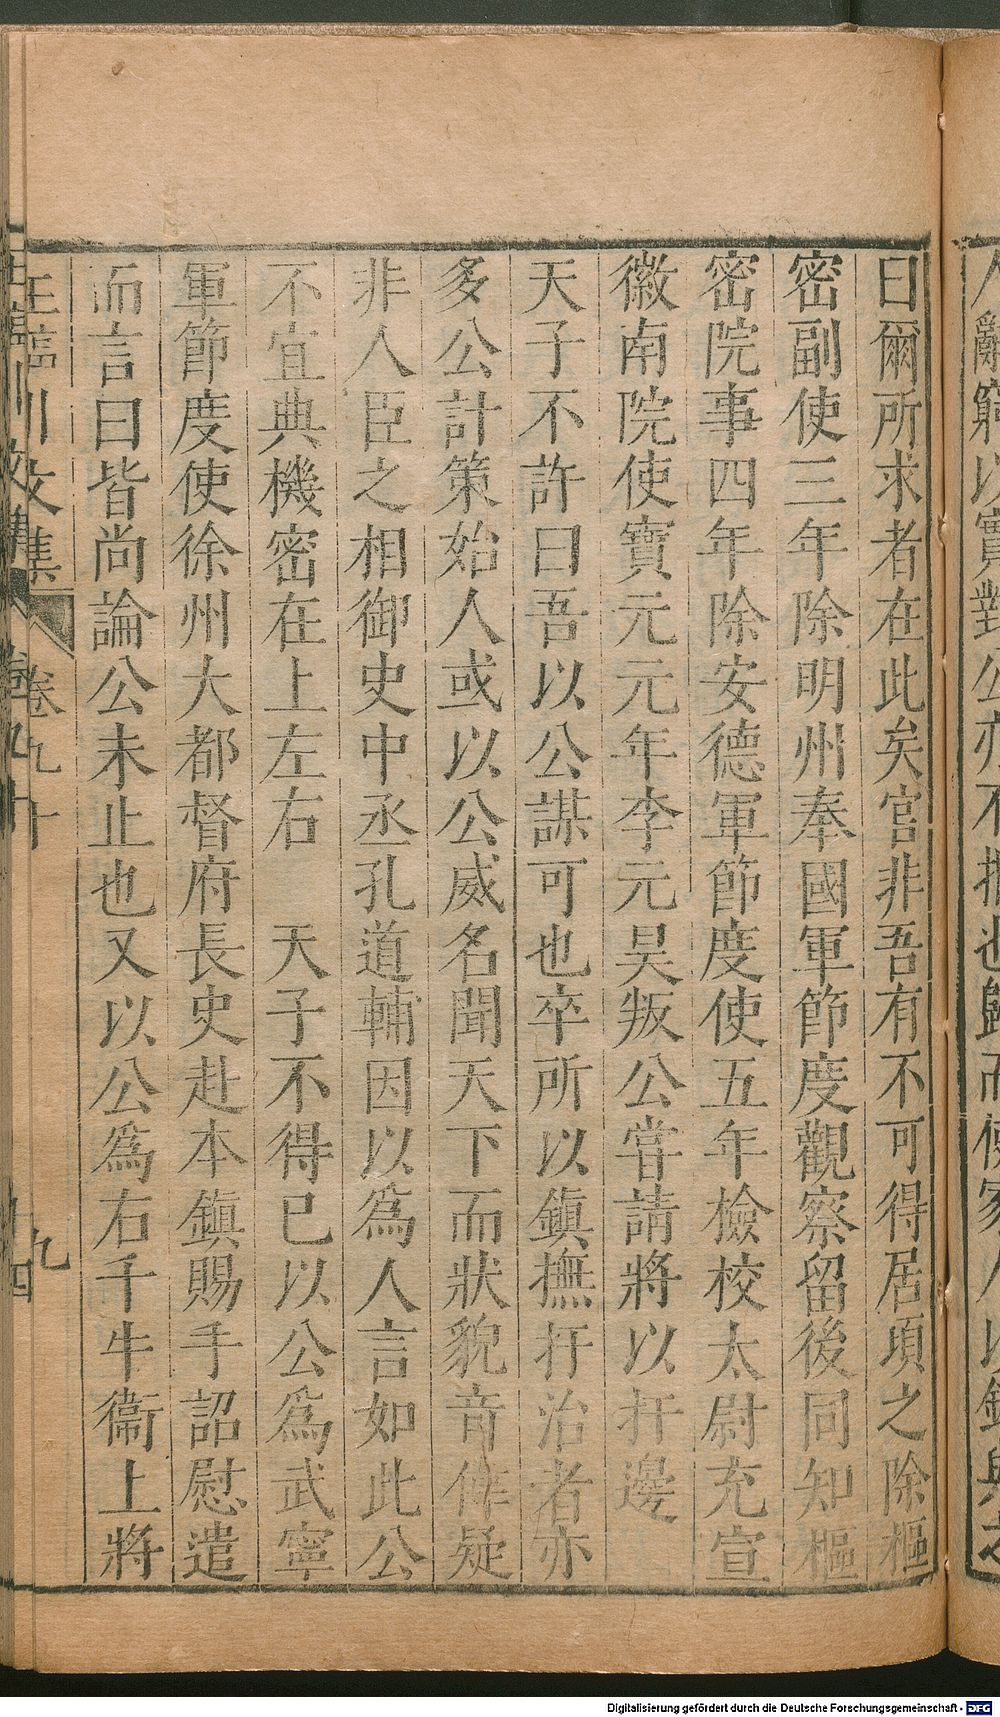 曰爾所求者在此矣官非吾有不可得居項之除樞
密副使三年除明州奉國軍節度觀察留後同知樞
密院事四年除安德軍節度使五年檢校太尉充宣
徽南院使寶元元年李元昊叛公嘗請將以扞邊
天子不許曰吾以公謀可也卒所以鎮撫扞治者亦
多公計策始人或以公威名聞天下而狀貌奇偉疑
非人臣之相御史中丞孔道輔因以爲人言如此公
不宜典機密在上左右　天子不得已以公爲武寧
軍節度使徐州大都督府長史赴本鎮賜手詔慰遣
而言曰皆尚論公未止也又以公爲右千牛衞上將
王臨川文集　卷九十　九
Digitalisierung gefördert durch die Deutsche Forschungsgemeinschaft - DFG